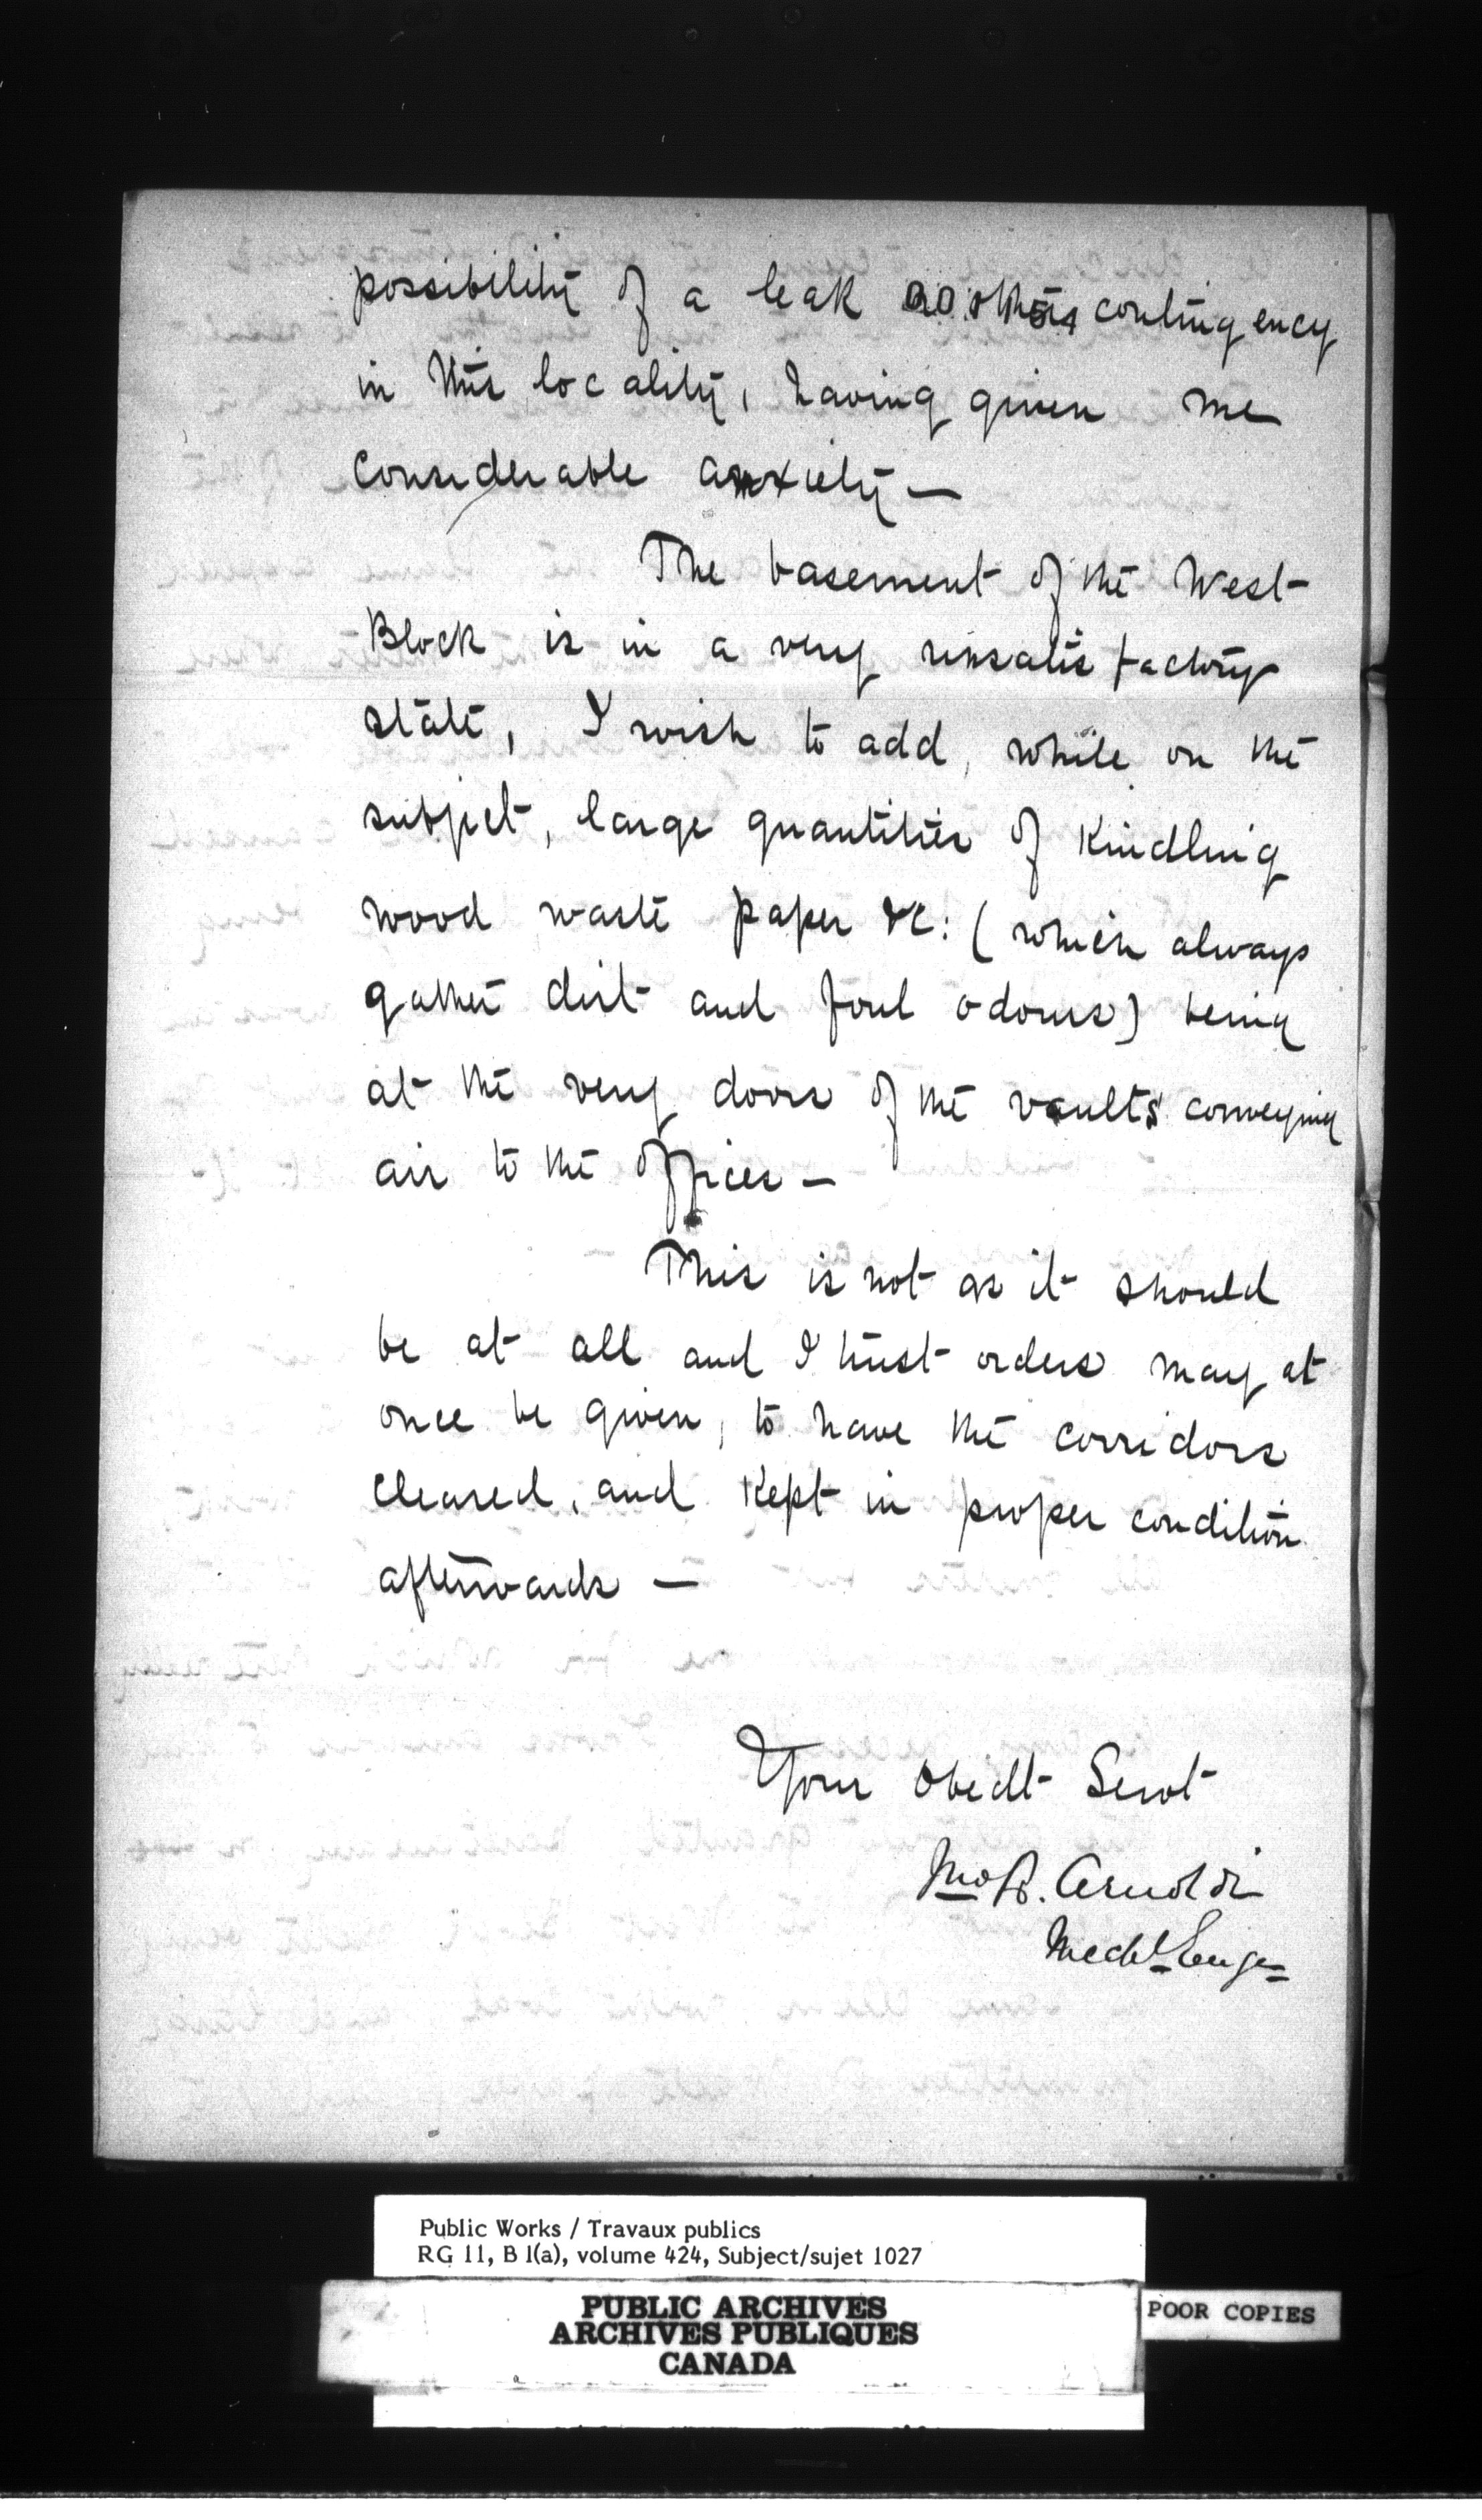 possibility of a leak or other contingency
in this locality, having given me
considerable anxiety —
The basement of the West
Block is in a very unsatisfactory
state, I wish to add, while on the
subject, large quantities of Kindling
wood waste paper &c: (which always
gather dirt and foul odours) being
at the very doors of the vaults conveying
air to the offices —
This is not as it should
be at all and I trust orders may at
once be given, to have the corridors
cleared, and Kept in proper condition
afterwards —
Your Obedt Servt
Jno R. Arnoldi
Mechl Engr
Public Works / Travaux publics
RG 11, B 1(a), volume 424, Subject/sujet 1027
PUBLIC ARCHIVES
ARCHIVES PUBLIQUES
CANADA
POOR COPIES